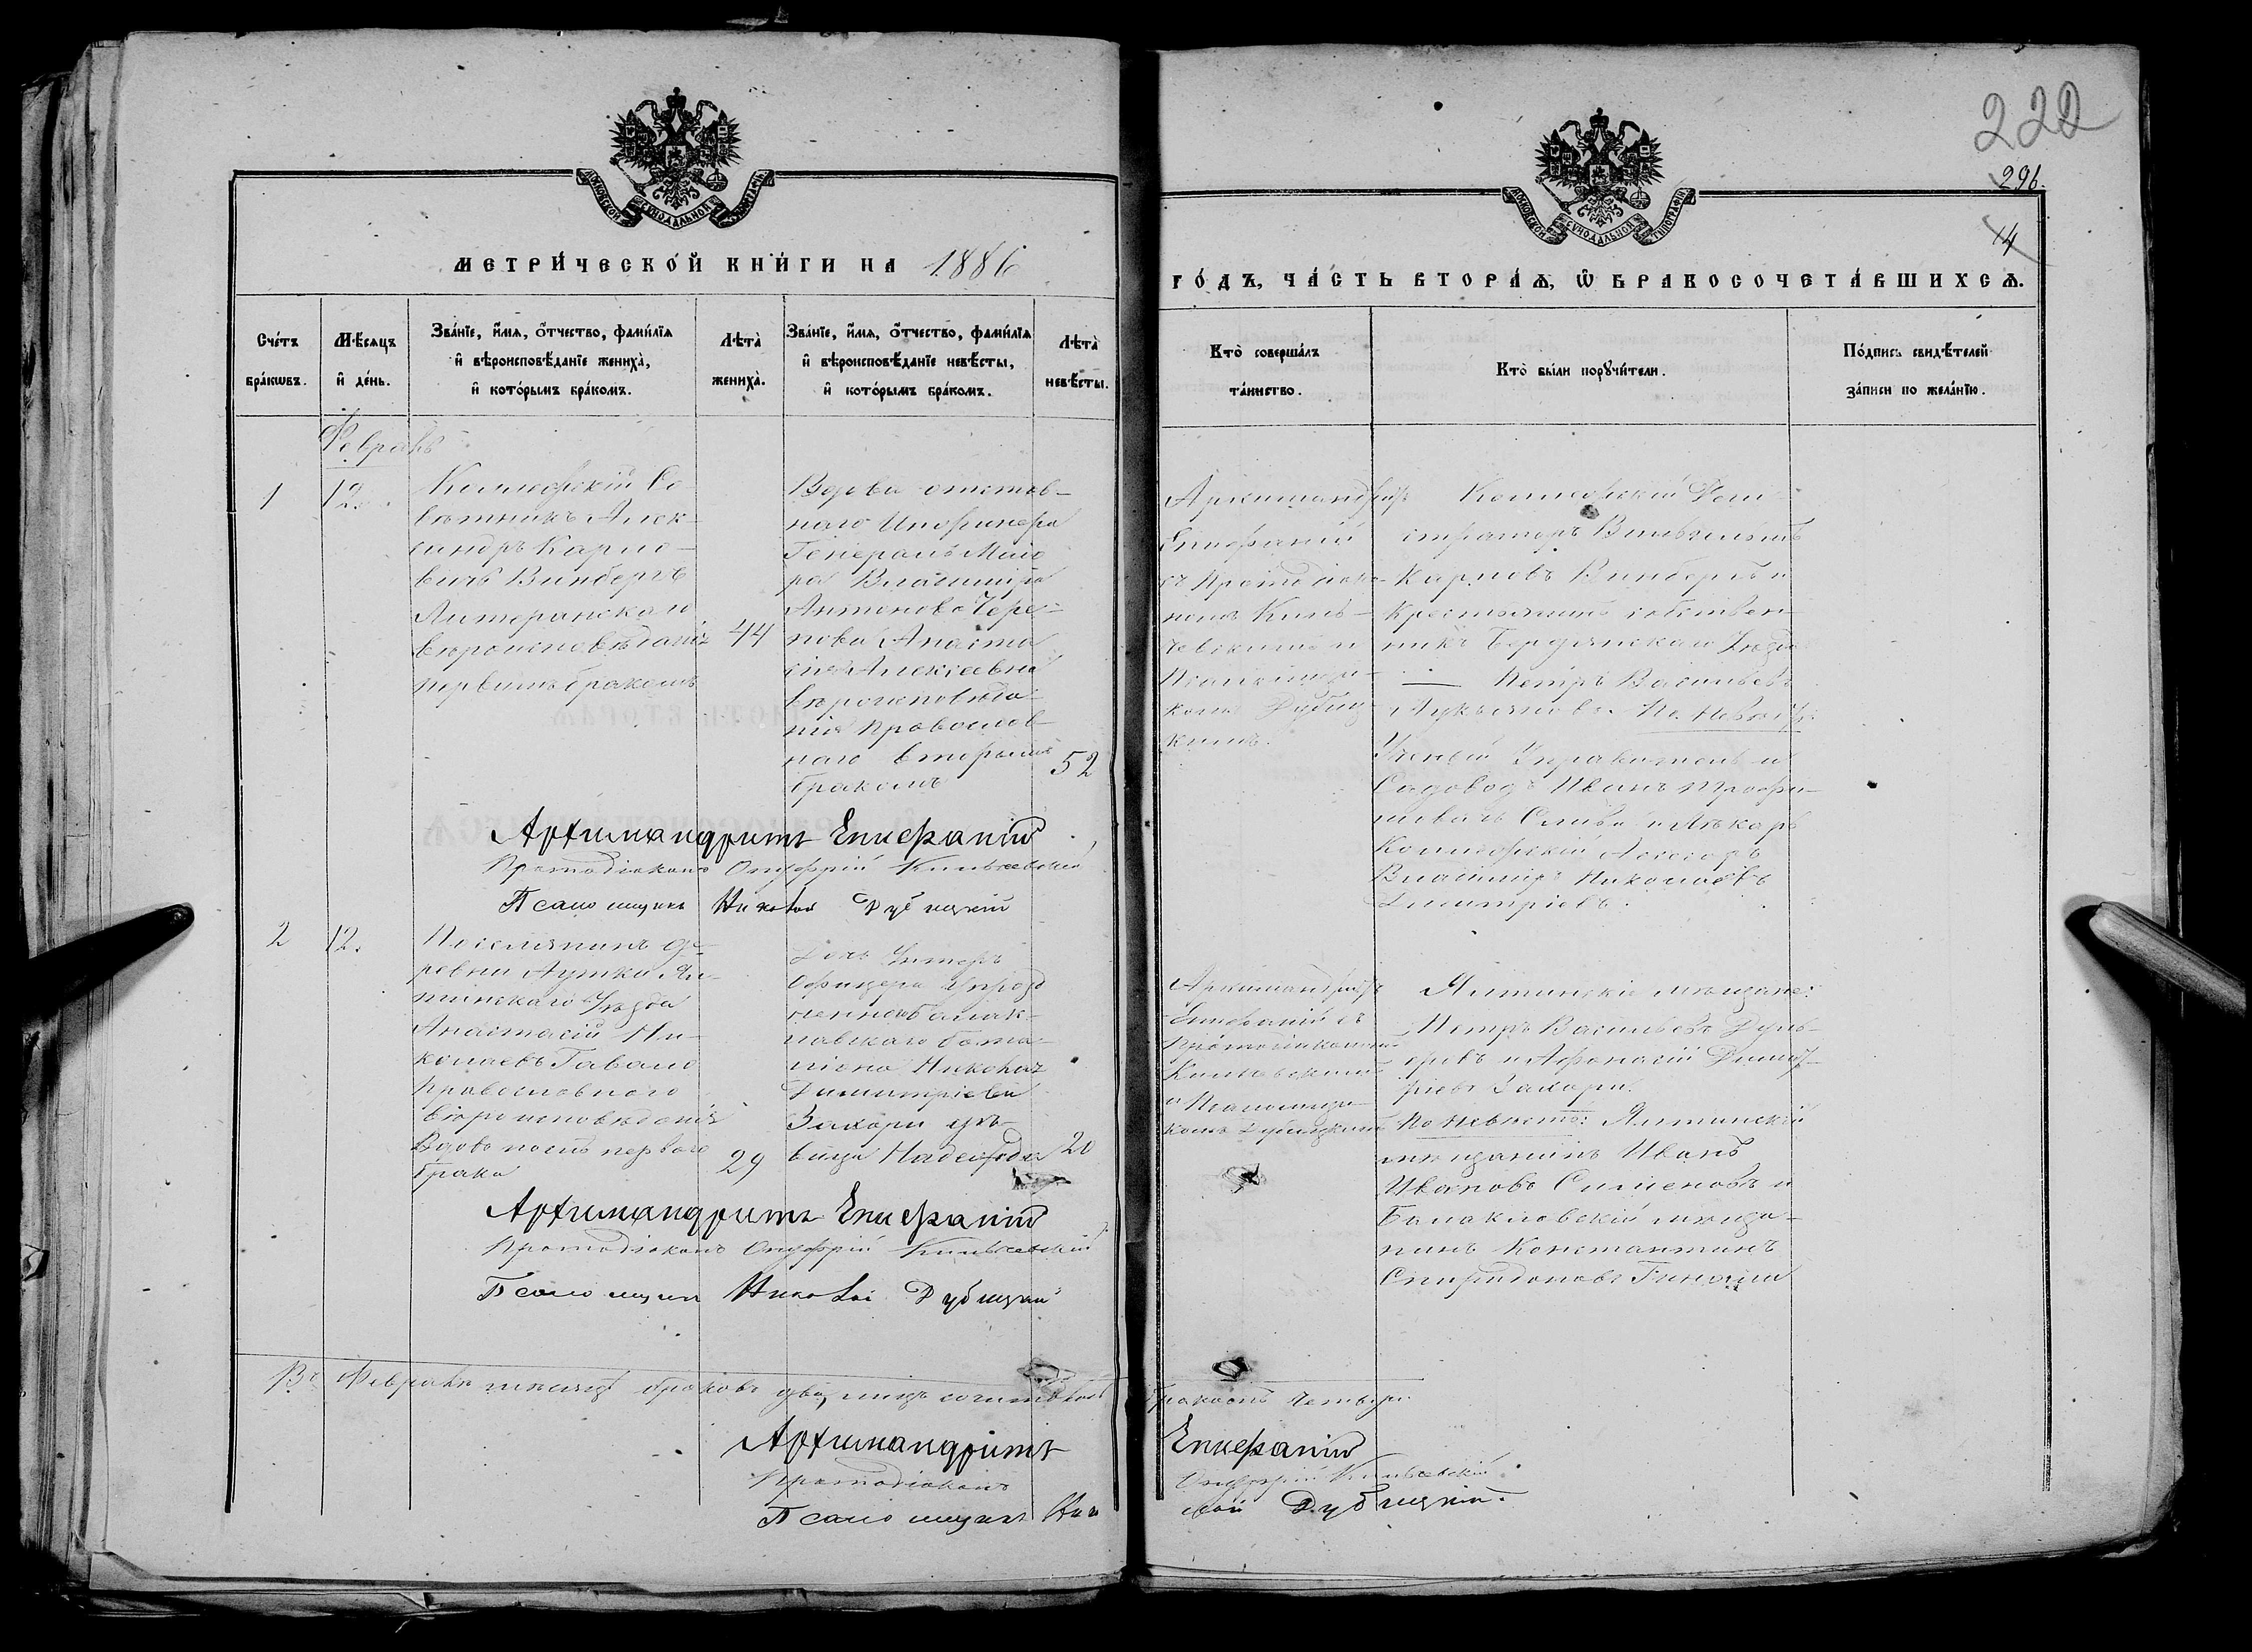 222
296.
14
МОСКОВСКОЙ СѴНОДАЛЬНОЙ ТИПОГРАФІИ
МОСКОВСКОЙ СѴНОДАЛЬНОЙ ТИПОГРАФІИ
МЕТРИ́ЧЕСКОЙ КНИ́ГИ НА 1886
ГО́ДЪ, ЧА́СТЬ ВТОРА́Ѧ, Ѽ БРАКОСОЧЕТА́ВШИХСѦ.
Сче́тъ
бра́кѡвъ.
Мѣ́сяцъ
и҆ де́нь.
Зва́нїе, и҆́мя, ѻ҆́тчество, фами́лїя
и҆ вѣроисповѣ́данїе жениха̀,
и҆ кото́рымъ бра́комъ.
Лѣта̀
жениха̀.
Зва́нїе, и҆́мя, ѻ҆́тчество, фами́лїя
и҆ вѣроисповѣ́данїе невѣ́сты,
и҆ кото́рымъ бра́комъ.
Лѣта̀
невѣ́сты.
Кто̀ соверша́лъ
та́инство.
Кто̀ бы́ли порꙋчи́тели.
По́дпись свидѣ́телей
за́писи по жела́нїю.
Февраль
1
12.
Коллежскій Со-
вѣтникъ Алек-
сандръ Карло-
вичъ Винбергъ
Лютеранскаго
вѣроисповѣданія
первымъ бракомъ
44
Вдова отстав-
наго Инженера
Генералъ Маіо
ра Владиміра
Антонова Чере-
пова Анаста
сія Алексѣевна
вѣроисповѣда-
нія православ
наго вторымъ
бракомъ
52
Архимандритъ
Епифаній
съ Протодіако-
номъ Киль-
чевскимъ и
Псаломщи-
комъ Дубиц-
кимъ.
Коллежскій Реги-
страторъ Вильгельмъ
Карловъ Винбергъ и
Крестьянинъ собствен-
никъ Бердянскаго Уѣзда
Петръ Васильевъ
Лукьяновъ. По невѣстѣ:
Ученый Управитель и
Садоводъ Иванъ
и Лѣкарь
Коллежскій Асессоръ
Владиміръ Николаевъ
Димитріевъ.
Архимандритъ Епифаній
Протодіаконъ Онуфрій Кильчевскій
Псаломщикъ Николай Дубицкій
2
12.
Поселянинъ де-
ревни Аутки Ял-
тинскаго Уѣзда
Анастасій Ни-
колаевъ Гавало
православнаго
вѣроисповѣданія
Вдовъ послѣ перваго
брака
29
Дочь Унтеръ
Офицера упразд
неннаго Балак-
лавскаго бата-
ліона Николая
Димитріева
Захари дѣ-
вица Надежда
20
Архимандритъ
Епифаній съ
Протодіакономъ
Кильчевскимъ
и Псаломщи-
комъ Дубицкимъ
Ялтинскіе мѣщане:
Петръ Васильевъ
и Афонасій Димит-
ріевъ Захари.
По невѣстѣ: Ялтинскій
мѣщанинъ Иванъ
Ивановъ Сименовъ и
Балаклавскій мѣща-
нинъ Константинъ
Спиридоновъ Гинали
Архимандритъ Епифаній
Протодіаконъ Онуфрій Кильчевскій
Псаломщикъ Николай Дубицкій
Въ Февралѣ мѣсяцѣ браковъ два, лицъ сочтавшихся бракомъ четыре
Архимандритъ Епифаній
Протодіаконъ Онуфрій Кильчевскій
Псаломщикъ Николай Дубицкій.